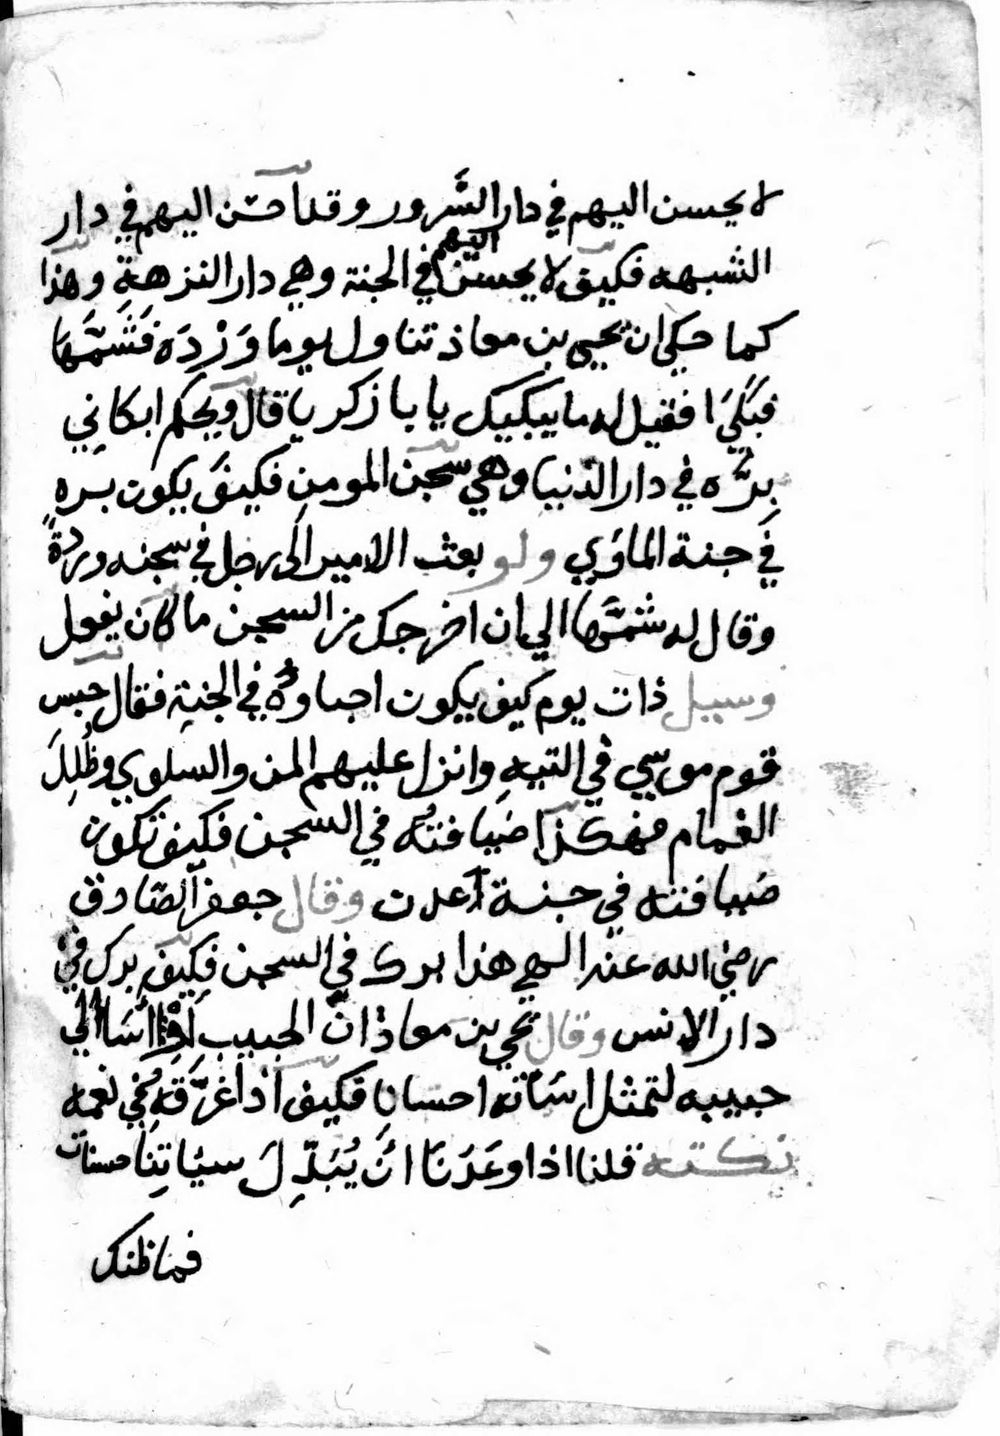 لا يحسن اليهم في دار السَّرور وقد احسن اليهم في دار
الشبهه فكيف لا يحسن اليهم في الجنة وهي دار النزهةِ وهذا
كما حكي ان يحيي بن معاذ تناول يوما وَرْدَه فَشَمَّهَا
فبَكَيَ ا فقيل له ما يبكيك يا با زكريا قال ويحكم ابكاني
بِرُّه في دار الدنيا وهي سجن المومنِ فكيفَ يكون بره
في جنة الماوَي ولو بعث الامير الى رجل في سجنه وردةً
وقال له شمَّها الي ان اخرجك من السجن ما كان يفعل
وسيل ذات يوم كيف يكون احباوهُ في الجنةِ فقال حبس
قوم موسي في التيهِ وانزل عليهم المن والسلوي وظُلِلَ
الغمام فهكذا ضيافتُه في السجن فكيف تكون
ضيافته في جنة اعدت وقال جعفر الصّادق
رضي الله عنه الهي هذا برك في السجن فكيف برك في
دار الانس وقال يحي بن معاذ انَّ الحبيب اذا اسَا الي
حبيبه لتمثل اسَاته احسانا فكيف اذا غرَّقَه في نعمه
نكته قلنا اذا وعَدَنَا انَ يُبَدِّلَ سيّاتِنا حسنات
فما ظنك